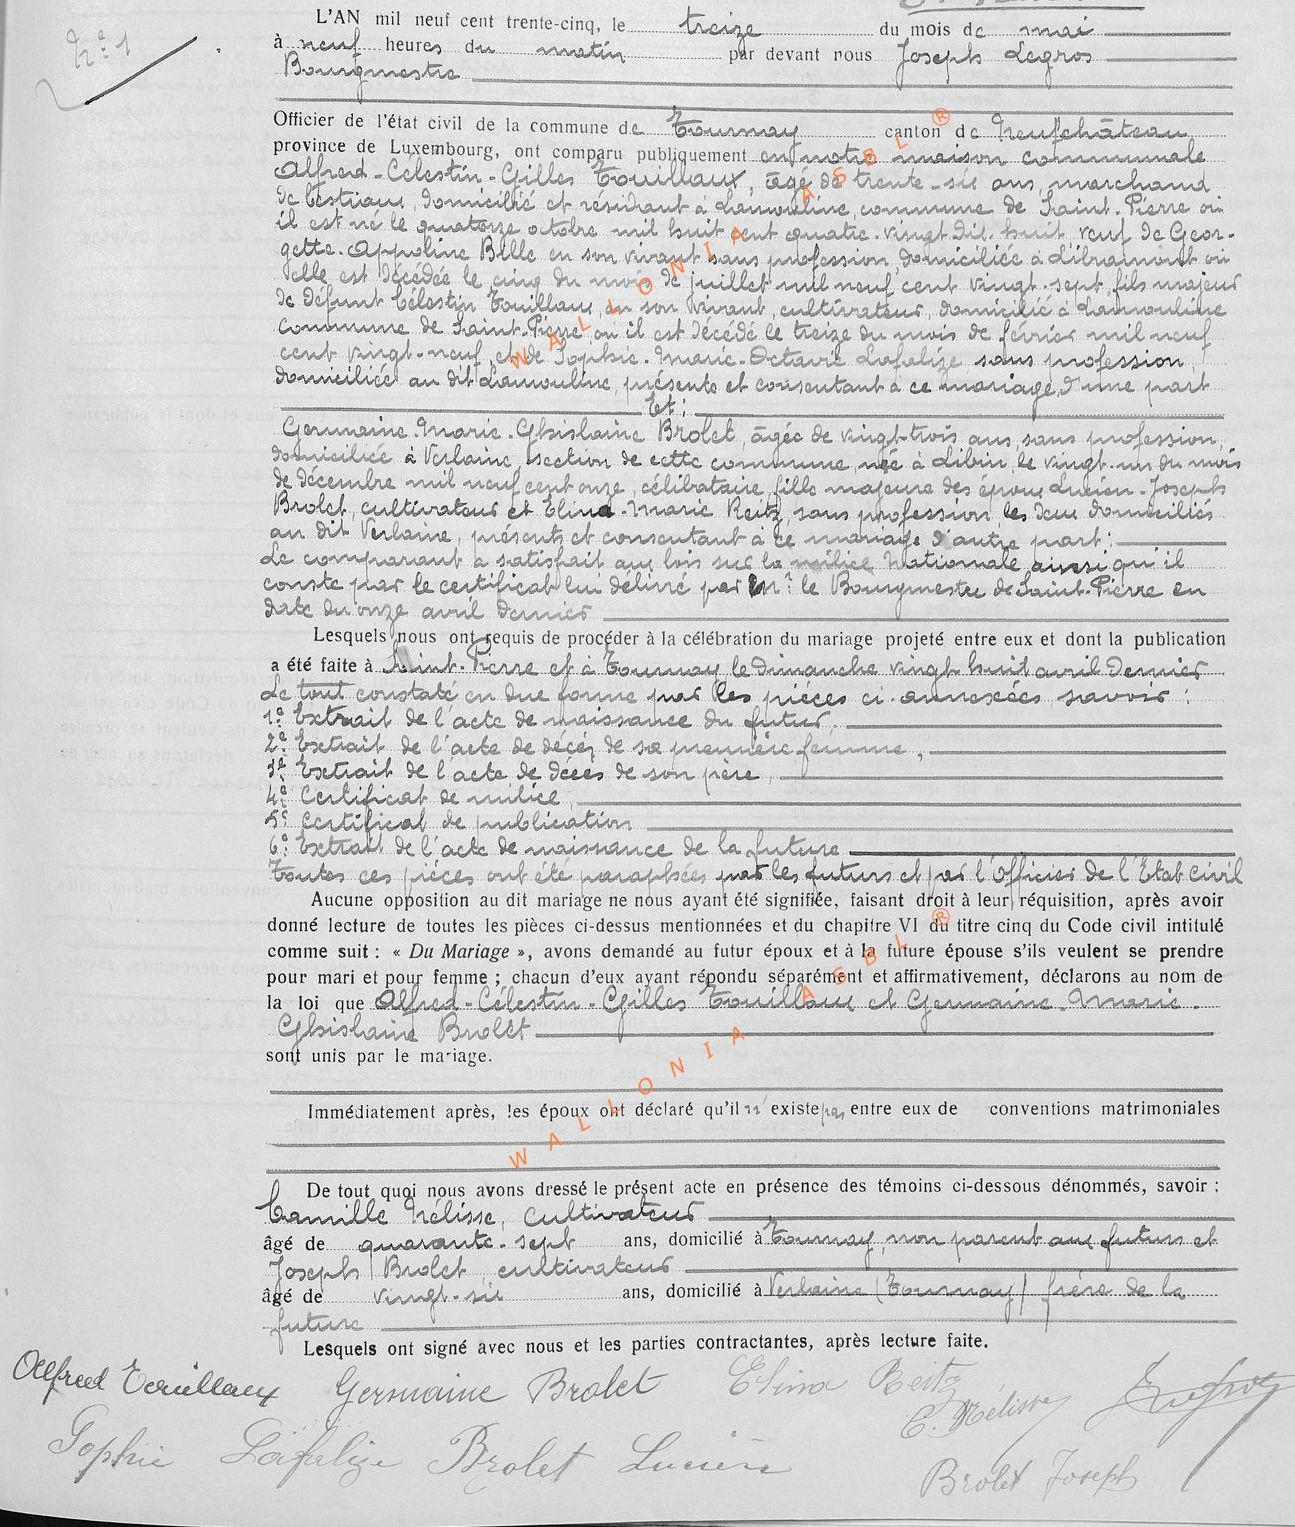 N° 1
L'AN mil neuf cent trente-cinq, le treize du mois de mai
à neuf heures du matin par devant nous Joseph Legros
Bourgmestre
Officier de l'état civil de la commune de Tournay canton de Neufchâteau
province de Luxembourg, ont comparu publiquement en notre maison communale
Alfred-Célestin-Gilles Touillaux, âgé de trente-six ans, marchand
de bestiaux, domicilié et résidant à Lamouline, commune de Saint-Pierre où
il est né le quatorze octobre mil huit cent quatre-vingt dix-huit, veuf de Geor-
gette-Appoline Bille en son vivant sans profession, domiciliée à Libramont où
elle est décédée le cinq du mois de juillet mil neuf cent vingt-sept, fils majeur
de défunt Célestin Touillaux, en son vivant, cultivateur, domicilié à Lamouline
commune de Saint-Pierre, où il est décédé le treize du mois de février mil neuf
cent vingt-neuf, et de Sophie-Marie-Octavie Lafalize sans profession,
domiciliée au dit Lamouline, présente et consentant à ce mariage, d'une part
Et:
Germaine-Marie-Ghislaine Brolet, âgée de vingt-trois ans, sans profession,
domiciliée à Verlaine, section de cette commune, née à Libin, le vingt-un du mois
de décembre mil neuf cent onze, célibataire, fille majeure des époux Lucien-Joseph
Brolet, cultivateur et Elina-Marie Reitz, sans profession, les deux domiciliés
au dit Verlaine, présents et consentant à ce mariage d'autre part;
Le comparant a satisfait aux lois sur la milice Nationale ainsi qu'il
conste par le certificat lui délivré par Mr le Bourgmestre de Saint-Pierre en
date du onze avril dernier
Lesquels nous ont requis de procéder à la célébration du mariage projeté entre eux et dont la publication
a été faite à Saint-Pierre et à Tournay le dimanche vingt huit avril dernier
Le tout constaté en due forme par les pièces ci-annexées, savoir:
1° Extrait de l'acte de naissance du futur,
2° Extrait de l'acte de décès de sa première femme,
3° Extrait de l'acte de décès de son père,
4° Certificat de milice,
5° Certificat de publication
6° Extrait de l'acte de naissance de la future
Toutes ces pièces ont été paraphées par les futurs et par l'Officier de l'Etat Civil
Aucune opposition au dit mariage ne nous ayant été signifiée, faisant droit à leur réquisition, après avoir
donné lecture de toutes les pièces ci-dessus mentionnées et du chapitre VI du titre cinq du Code civil intitulé
comme suit : « Du Mariage », avons demandé au futur époux et à la future épouse s'ils veulent se prendre
pour mari et pour femme ; chacun d'eux ayant répondu séparément et affirmativement, déclarons au nom de
la loi que Alfred-Célestin-Gilles Touillaux et Germaine-Marie-
Ghislaine Brolet
sont unis par le mariage.
Immédiatement après, les époux ont déclaré qu'il n'existe pas entre eux de conventions matrimoniales
De tout quoi nous avons dressé le présent acte en présence des témoins ci-dessous dénommés, savoir :
Camille Mélisse, cultivateur
âgé de quarante-sept ans, domicilié à Tournay, non parent aux futurs et
Joseph Brolet, cultivateur
âgé de vingt-six ans, domicilié à Verlaine (Tournay) frère de la
future
Lesquels ont signé avec nous et les parties contractantes, après lecture faite.
Alfred Touillaux Germaine Brolet Elina Reitz
C. Mélisse J Legros
Sophie Lafalize Brolet Lucien
Brolet Joseph
WALLONIA ASBL ®
WALLONIA ASBL ®